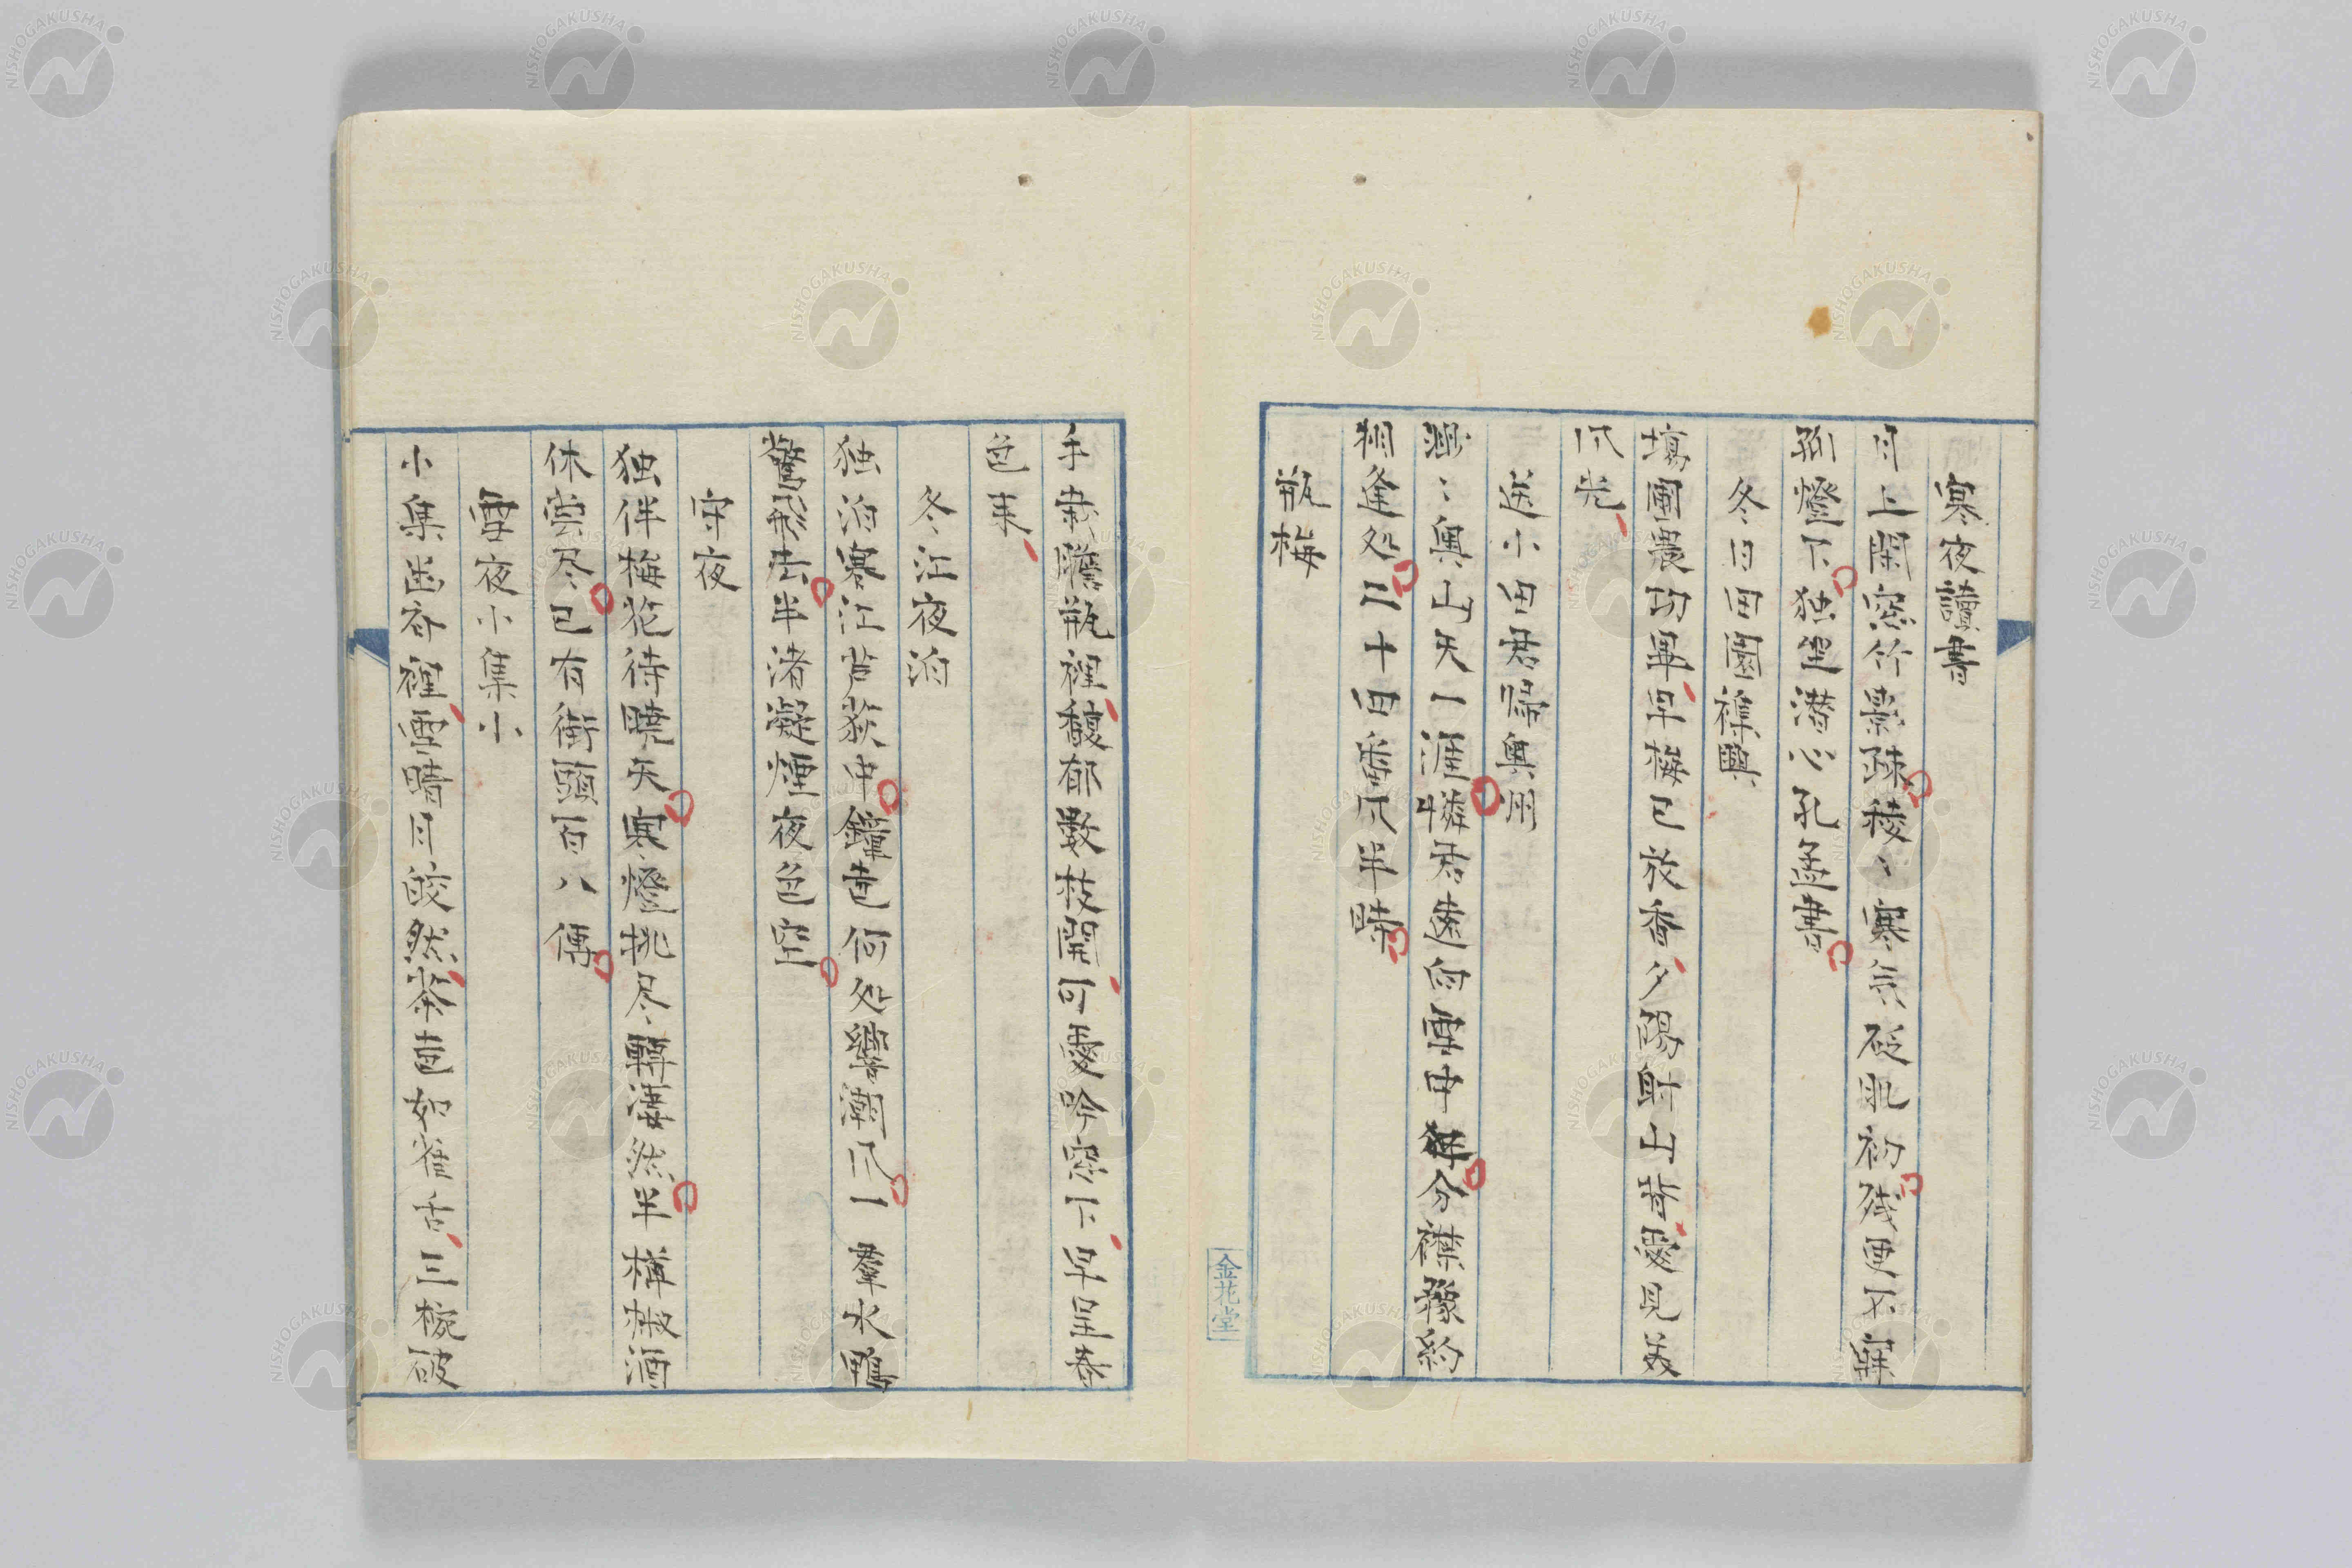 寒夜讀書
月上閑窓竹影疎稜〻寒気砭肌初残更不寐
孤燈下独坐潜心孔孟書
冬日田園襍興
場圃農功畢早梅已放香夕陽射山背愛見数
爪先
送小田君帰奥州
渺〻奥山天一涯憐君遠向雪中分襟豫約
相逢処二十四番風半時
瓶梅
手栽膽瓶裡馥郁数枝開可愛吟窓下早呈春
色来
冬江夜泊
独泊寒江芦荻中鐘声何処響瀟風一群水鴨
驚飛去半渚凝煙夜色空
守夜
独伴梅花待曉天寒燈挑尽轉凄然半樽椒酒
休嘗尽已有街頭百八傳
雪夜小集小
小集幽斎裡雪晴月皎然茶煮如雀舌三椀破
金花堂
NISHOGAKUSHA